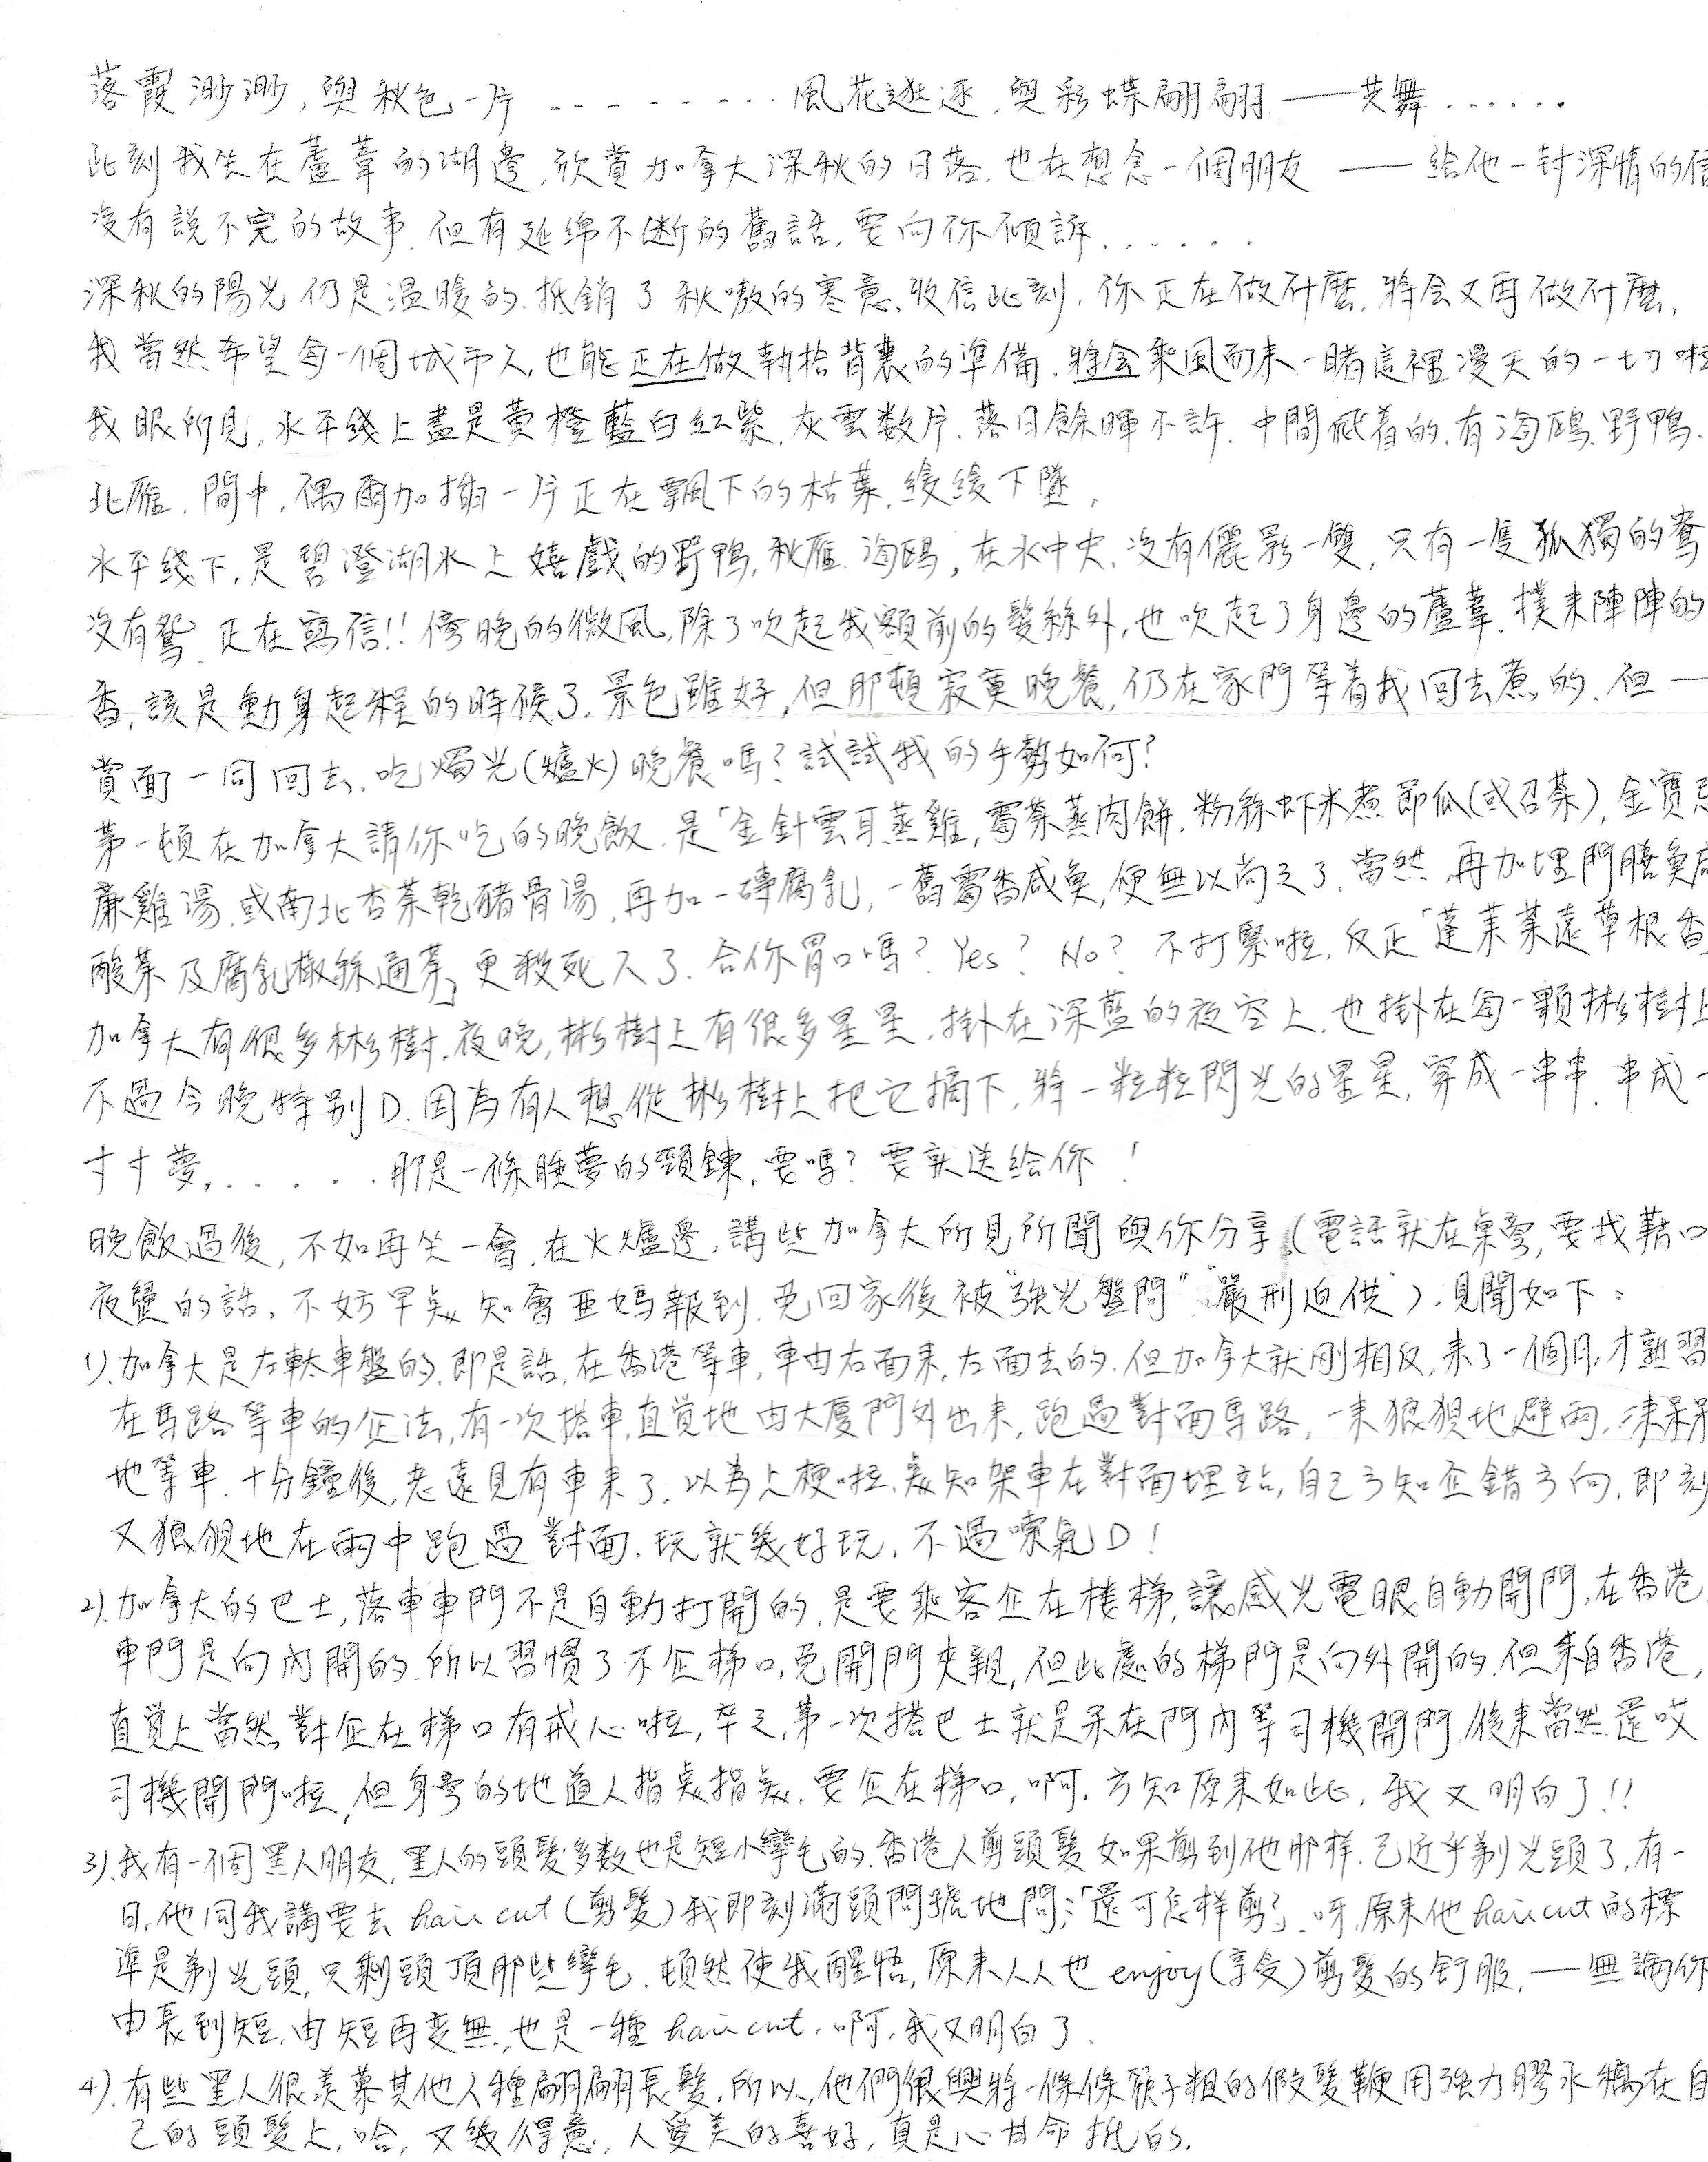 落霞渺渺，與秋色一片 ......... 風花遊逐，與彩蝶翩翩 —— 共舞 ......
此刻我坐在蘆葦的湖邊，欣賞加拿大深秋的日落，也在想念一個朋友 —— 給他一封深情的信
沒有說不完的故事，但有延绵不断的舊話，要向你傾訴 ......
深秋的陽光仍是温暖的，抵銷了秋嗷的寒意，收信此刻，你正在做什麼，将会又再做什麼，
我當然希望每一個城市人，也能正在做執拾背囊的準備，将会乘風而来一睹這裡漫天的一切啦
我眼所見，水平线上盡是黄橙藍白红紫，灰雲数片，落日餘暉不許，中間飛着的，有海鸥，野鴨，
北雁，間中，偶爾加插一片正在飄下的枯葉，缓缓下墜，
水平线下，是碧澄湖水上嬉戲的野鴨，秋雁，海鸥，在水中央，沒有儷影一雙，只有一隻狐獨的鴦
沒有鴛，正在寫信!! 傍晚的微風，除了吹起我額前的髮絲外，也吹起了身邊的蘆葦，撲来陣陣的
香，該是動身起程的時候了，景色雖好，但那頓寂寞晚餐，仍在家門等着我回去煮的，但一
賞面一同回去，吃燭光(爐火)晚餐嗎？試試我的手勢如何？
第一頓在加拿大請你吃的晚飯，是「金針雲耳蒸雞，霉菜蒸肉餅，粉絲虾米煮節瓜(或召菜)，金寶忌
廉雞湯，或南北杏菜乾豬骨湯，再加一磚腐乳，一舊霉香咸魚，便無以尚之了，當然，再加埋門鱔魚
酸菜及腐乳椒絲通菜」更殺死人了，合你胃口嗎？Yes？No？不打緊啦，反正「蓬茉菜遠草根香
加拿大有很多彬樹，夜晚，彬樹上有很多星星，掛在深藍的夜空上，也掛在每一顆彬樹上
不過今晚特别D，因為有人想從彬樹上把它摘下，将一粒粒閃光的星星，穿成一串串，串成一
寸寸夢，..... 那是一條睡夢的頸鍊，要嗎？要就送給你！
晚飯過後，不如再坐一會，在火爐邊，講些加拿大所見所聞與你分享（電話就在桌旁，要找藉口
夜歸的話，不妨早点知會亚媽報到，免回家後被“強光盤問”“嚴刑迫供”），見聞如下：
1). 加拿大是左軚車盤的，即是話，在香港等車，車由右面来，左面去的，但加拿大就刚相反，来了一個月，才熟習
在馬路等車的企法，有一次搭車，直覚地由大厦門外出来，跑過對面馬路，一来狼狽地避雨，二来呆呆
地等車，十分鐘後，老遠見有車来了，以為上梗啦，点知架車在對面埋站，自己方知企錯方向，即刻
又狼狽地在雨中跑過對面，玩就幾好玩，不過嗦氣D！
2). 加拿大的巴士，落車車門不是自動打開的，是要乘客企在楼梯，讓感光電眼自動開門，在香港
車門是向內開的，所以習慣了不企梯口，免開門夾親，但此處的梯門是向外開的，但来自香港，
直覚上當然對企在梯口有戒心啦，卒之，第一次搭巴士就是呆在門內等司機開門，後来當然還哎
司機開門啦，但身旁的地道人指点指点，要企在梯口，啊，方知原来如此，我又明白了!!
3). 我有一個黑人朋友，黑人的頭髮多数也是短小孿毛的，香港人剪頭髮如果剪到他那样，已近乎剃光頭了，有一
日，他同我講要去 hair cut (剪髮) 我即刻滿頭問號地問：「還可怎样剪」，呀，原来他 hair cut 的標
準是剃光頭，只剩頭頂那些孿毛，頓然使我醒悟，原来人人也 enjoy (享受) 剪髮的舒服，— 無論你
由長到短，由短再变無，也是一種 hair cut，啊，我又明白了，
4). 有些黑人很羨慕其他人種翩翩長髮，所以，他們很興將一條條筷子粗的假髮鞭用強力膠水糊在自
己的頭髮上，哈，又幾得意，人愛美的喜好，真是心甘命抵的，